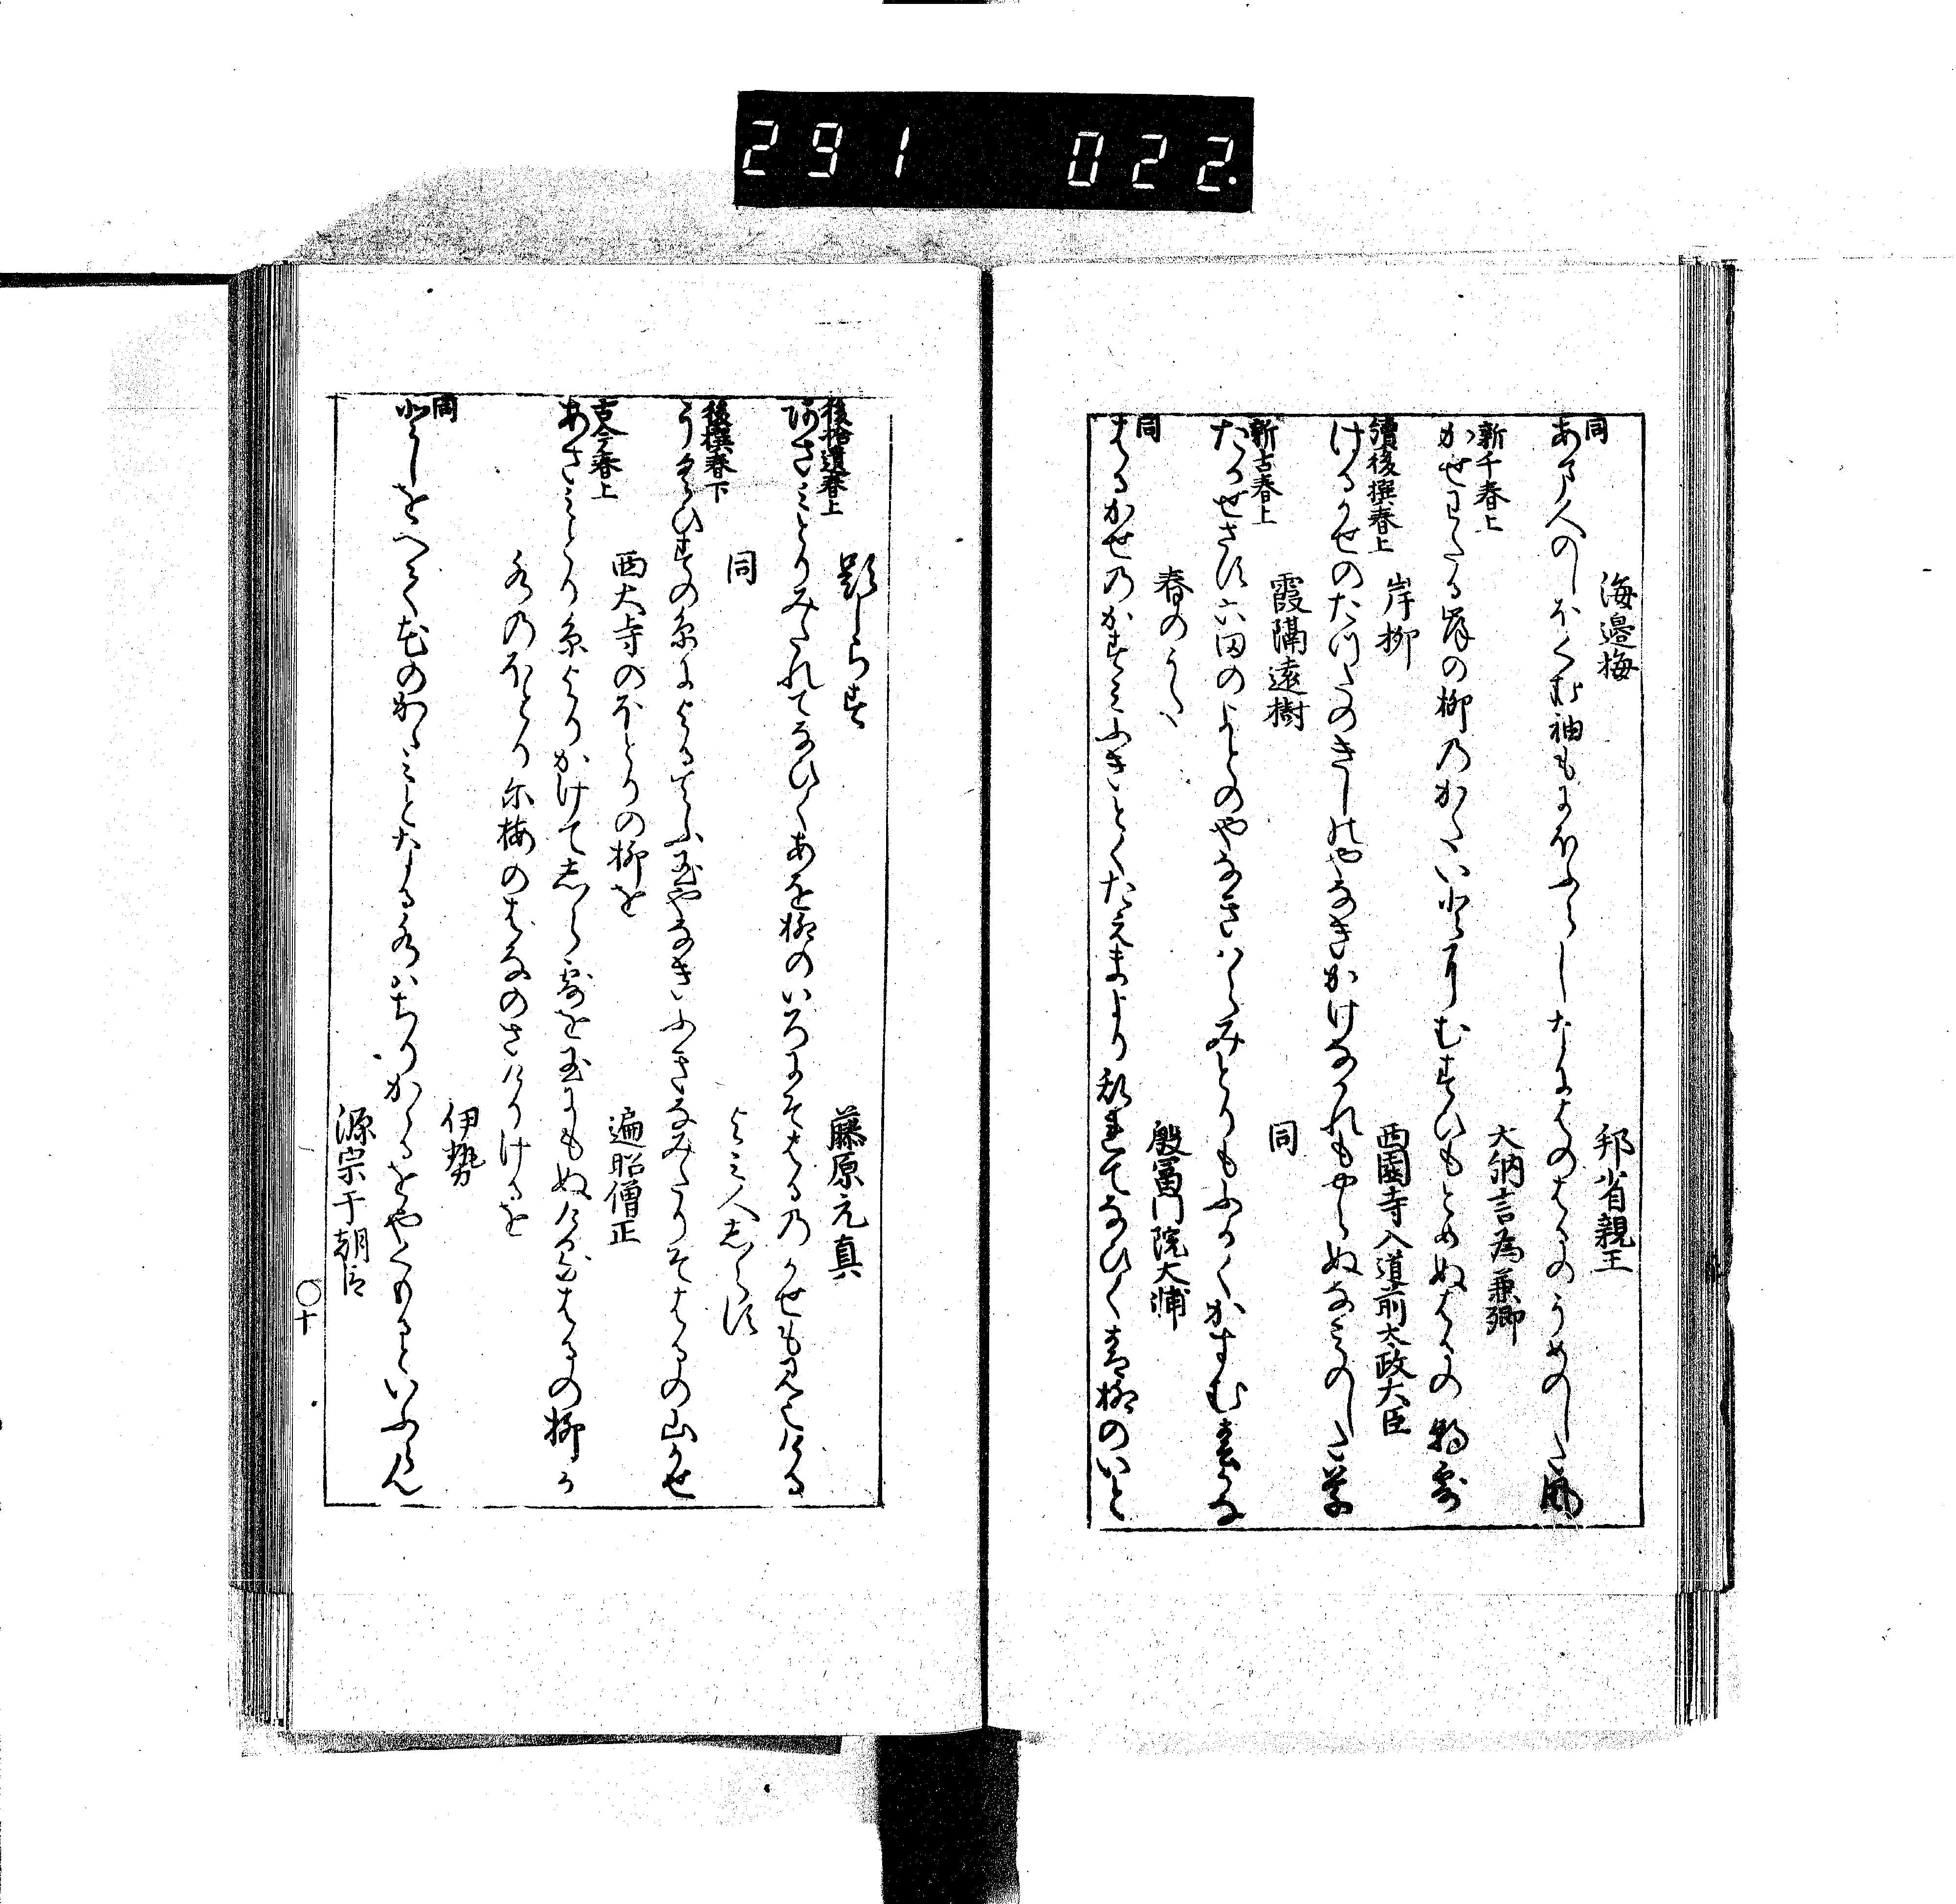 291 022.
海邊梅
邦省親王
同
あま人のしほくむ袖もにほふらしなにはのはるのうめのした風
新千春上
大納言為兼卿
かせわたる岸の柳のかたいとにむすひもとめぬはるの朝露
續後撰春上
岸柳
西園寺入道前太政大臣
けるかせのたつたのきしのやなきかけなかれもやらぬなみのした草
霞隔遠樹
同
新古春上
たかせさす六田のよとのやなきはらみとりもふかくかすむ春かな
春のうた
殷冨門院大浦
同
はるかせのかすみふきとくたえまよりみたれてなひく青柳のいと
題しらす
藤原元真
後拾遺春上
あさみとりみたれてなひくあを柳のいろにそはるのかせも見えける
同
よミ人しらす
後撰春下
うくひすの糸によるてふ玉やなきふきなみたりそはるの山かせ
西大寺のほとりの柳を
遍昭僧正
古今春上
あさみとり糸よりかけてしら露を玉にもぬけるはるの柳か
水のほとりに梅のはなのさけりけるを
伊勢
同
としをへて花のかゝみとなる水はちりかゝるをやくもるといふらん
源宗于朝臣
○十